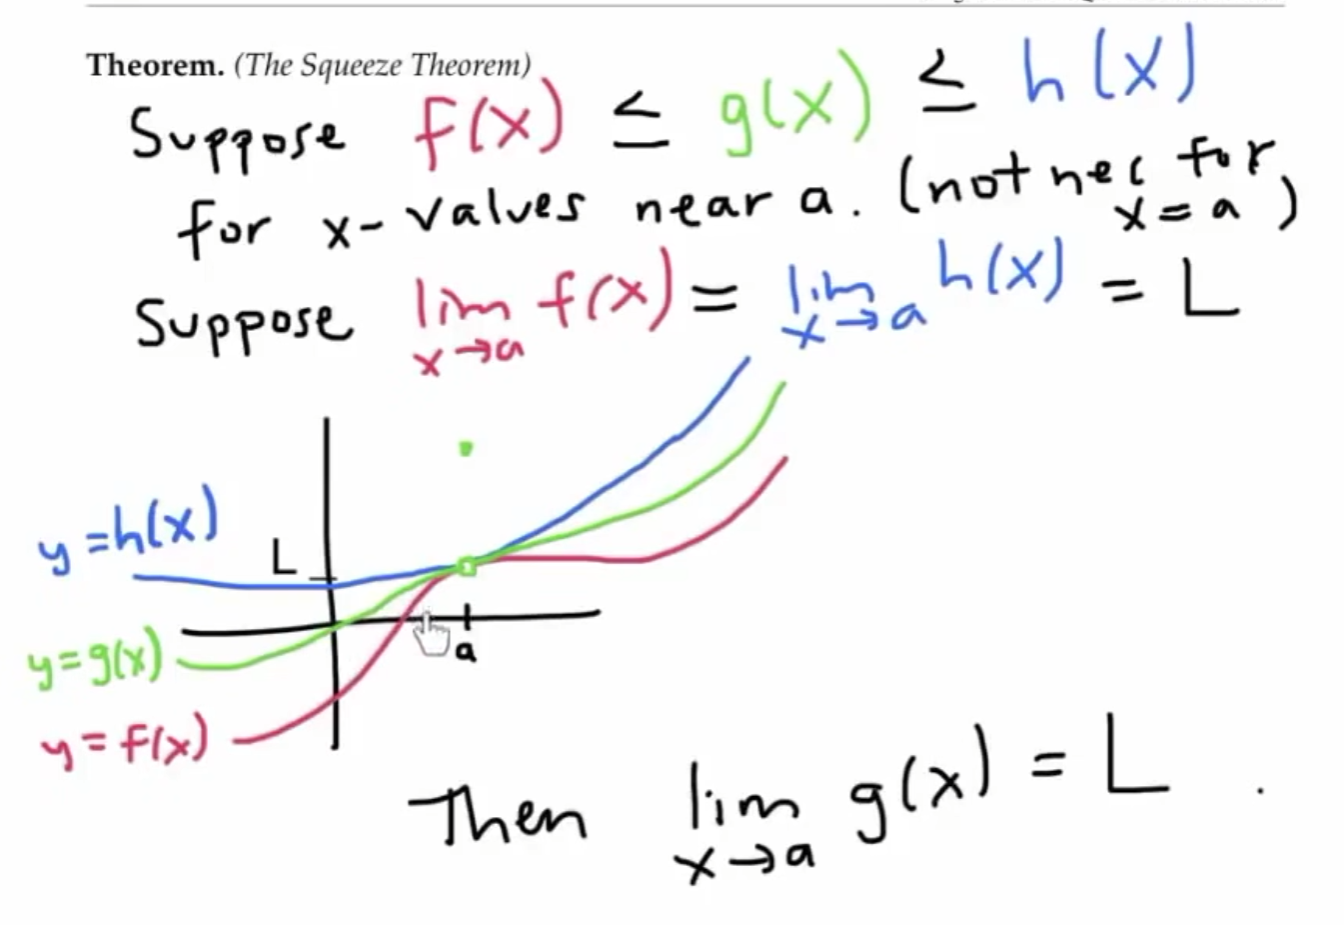 Theorem. (The Squeeze Theorem)
Suppose f(x) ≤ g(x) ≤ h(x)
for x-values near a. (not nec for x = a)
Suppose lim x→a f(x) = lim x→a h(x) = L
y = h(x)
L
a
y = g(x)
y = f(x)
Then lim x→a g(x) = L .